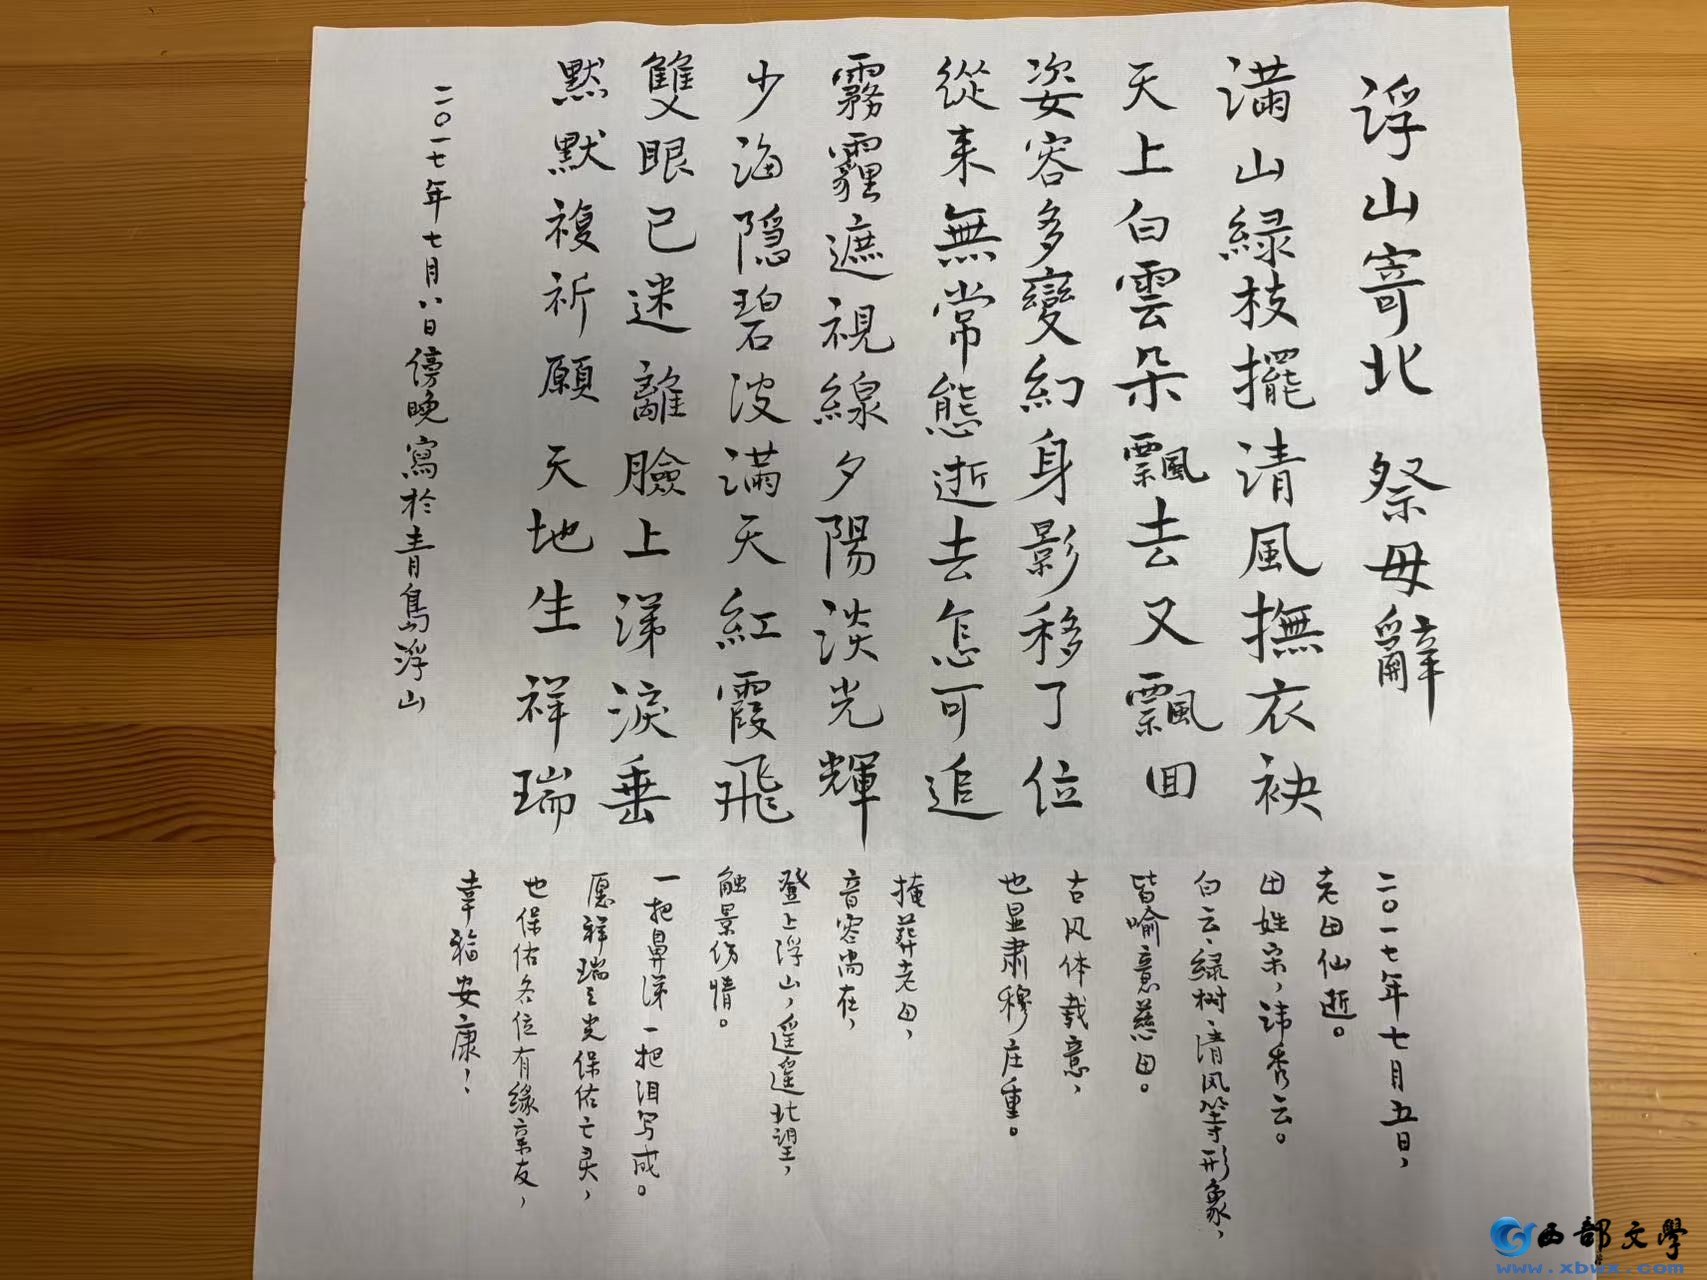 浮山寄北 祭母辭
满山緑枝擺清風撫衣袂
天上白雲朵飄去又飄回
姿容多變幻身影移了位
從来無常態逝去怎可追
霧霾遮視線夕陽淡光輝
少海隐碧波满天紅霞飛
雙眼已迷離臉上涕淚垂
默默複祈願天地生祥瑞
二〇一七年七月八日傍晚寫於青島浮山
二〇一七年七月五日，
老田仙逝。
田姓宋，讳秀云。
白云、绿树、清风等形象，
皆喻意慈田。
古风体载意，
也显肃穆庄重。
掩葬老田，
音容尚在，
登上浮山，遥遥北望，
触景伤情。
一把鼻涕一把泪写成。
愿祥瑞之光保佑亡灵，
也保佑各位有緣亲友，
幸福安康！
西部文學
www.xbwx.com